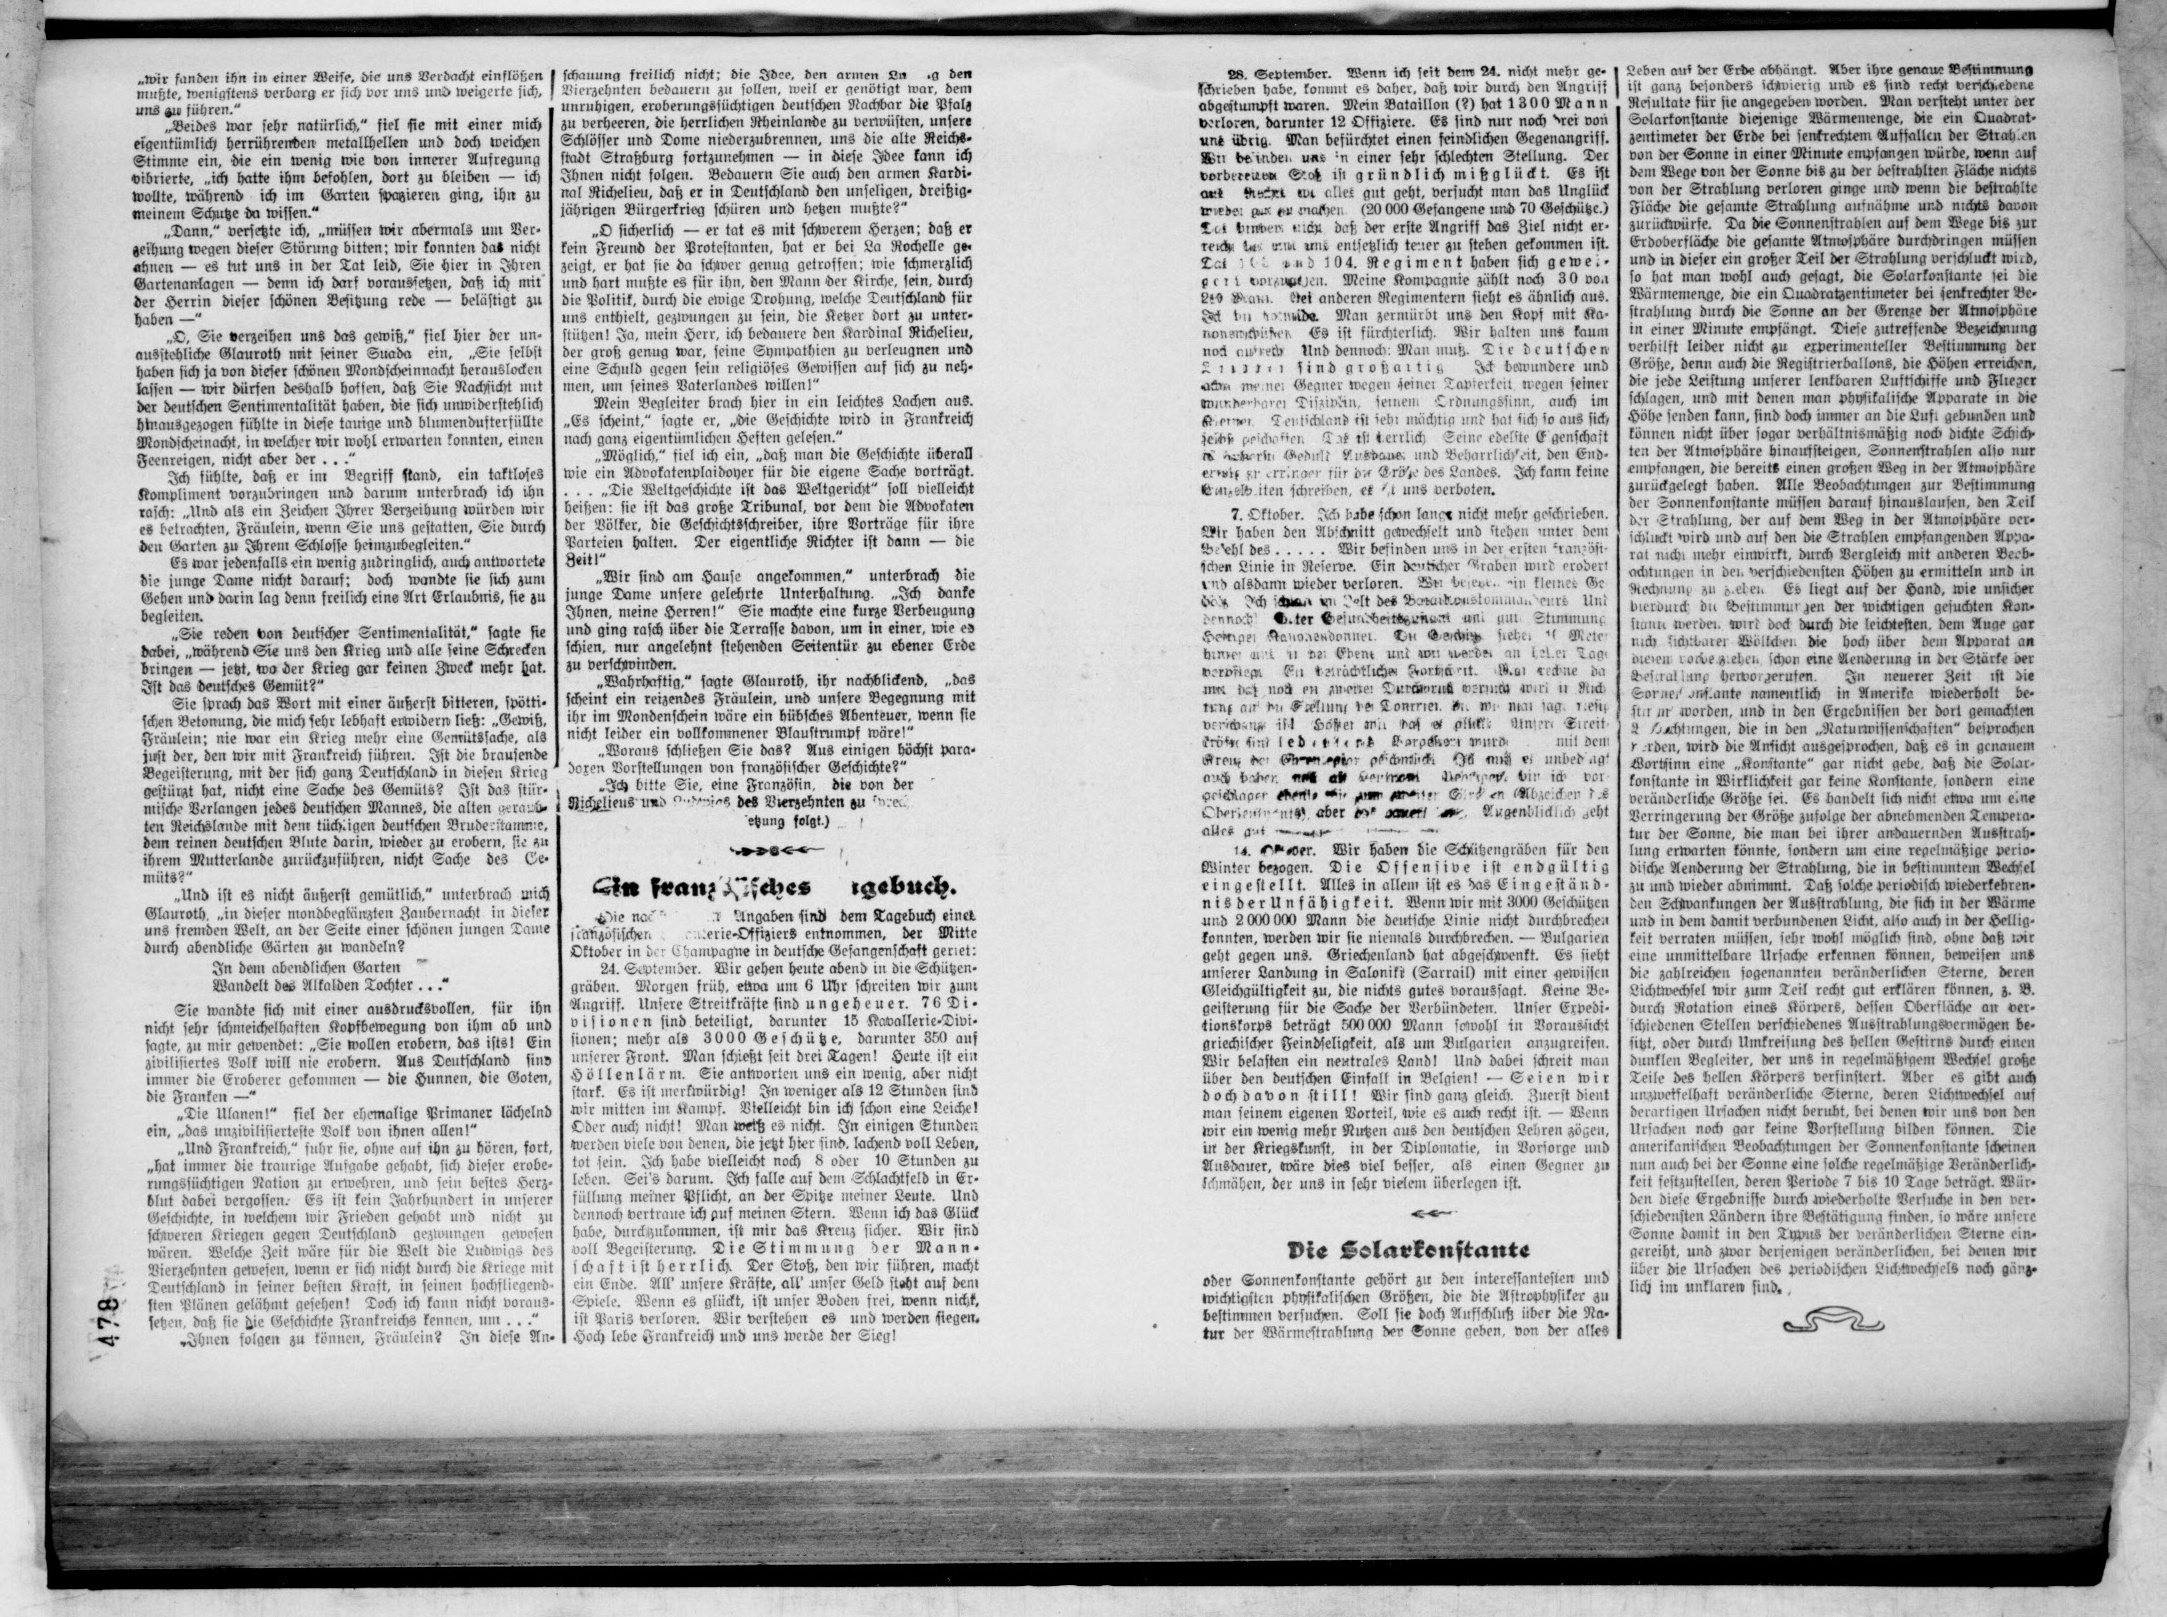 „wir fanden ihn in einer Weise, die uns Verdacht einflößen
mußte, wenigstens verbarg er sich vor uns und weigerte sich,
uns zu führen.“
„Beides war sehr natürlich,“ fiel sie mit einer mich
eigentümlich herrührenden metallhellen und doch weichen
Stimme ein, die ein wenig wie von innerer Aufregung
vibrierte, „ich hatte ihm befohlen, dort zu bleiben — ich
wollte, während ich im Garten spazieren ging, ihn zu
meinem Schutze da wissen.“
„Dann,“ versetzte ich, „müssen wir abermals um Ver-
zeihung wegen dieser Störung bitten; wir konnten das nicht
ahnen — es tut uns in der Tat leid, Sie hier in Ihren
Gartenanlagen — denn ich darf voraussetzen, daß ich mit
der Herrin dieser schönen Besitzung rede — belästigt zu
haben —“
„O, Sie verzeihen uns das gewiß,“ fiel hier der un-
ausstehliche Glauroth mit seiner Suada ein, „Sie selbst
haben sich ja von dieser schönen Mondscheinnacht herauslocken
lassen — wir dürfen deshalb hoffen, daß Sie Nachsicht mit
der deutschen Sentimentalität haben, die sich unwiderstehlich
hinausgezogen fühlte in diese tauige und blumendufterfüllte
Mondscheinacht, in welcher wir wohl erwarten konnten, einen
Feenreigen, nicht aber der . . .“
Ich fühlte, daß er im Begriff stand, ein taktloses
Kompliment vorzubringen und darum unterbrach ich ihn
rasch: „Und als ein Zeichen Ihrer Verzeihung würden wir
es betrachten, Fräulein, wenn Sie uns gestatten, Sie durch
den Garten zu Ihrem Schlosse heimzubegleiten.“
Es war jedenfalls ein wenig zudringlich, auch antwortete
die junge Dame nicht darauf; doch wandte sie sich zum
Gehen und darin lag denn freilich eine Art Erlaubnis, sie zu
begleiten.
„Sie reden von deutscher Sentimentalität,“ sagte sie
dabei, „während Sie uns den Krieg und alle seine Schrecken
bringen — jetzt, wo der Krieg gar keinen Zweck mehr hat.
Ist das deutsches Gemüt?“
Sie sprach das Wort mit einer äußerst bitteren, spötti-
schen Betonung, die mich sehr lebhaft erwidern ließ: „Gewiß,
Fräulein; nie war ein Krieg mehr eine Gemütssache, als
just der, den wir mit Frankreich führen. Ist die brausende
Begeisterung, mit der sich ganz Deutschland in diesen Krieg
gestürzt hat, nicht eine Sache des Gemüts? Ist das stür-
mische Verlangen jedes deutschen Mannes, die alten geraub-
ten Reichslande mit dem tüchtigen deutschen Bruderstamme,
dem reinen deutschen Blute darin, wieder zu erobern, sie zu
ihrem Mutterlande zurückzuführen, nicht Sache des Ge-
müts?“
„Und ist es nicht äußerst gemütlich,“ unterbrach mich
Glauroth, „in dieser mondbeglänzten Zaubernacht in dieser
uns fremden Welt, an der Seite einer schönen jungen Dame
durch abendliche Gärten zu wandeln?
In dem abendlichen Garten
Wandelt des Alkalden Tochter . . .“
Sie wandte sich mit einer ausdrucksvollen, für ihn
nicht sehr schmeichelhaften Kopfbewegung von ihm ab und
sagte, zu mir gewendet: „Sie wollen erobern, das ists! Ein
zivilisiertes Volk will nie erobern. Aus Deutschland sind
immer die Eroberer gekommen — die Hunnen, die Goten,
die Franken —“
„Die Ulanen!“ fiel der ehemalige Primaner lächelnd
ein, „das unzivilisierteste Volk von ihnen allen!“
„Und Frankreich,“ fuhr sie, ohne auf ihn zu hören, fort,
„hat immer die traurige Aufgabe gehabt, sich dieser erobe-
rungssüchtigen Nation zu erwehren, und sein bestes Herz-
blut dabei vergossen. Es ist kein Jahrhundert in unserer
Geschichte, in welchem wir Frieden gehabt und nicht zu
schweren Kriegen gegen Deutschland gezwungen gewesen
wären. Welche Zeit wäre für die Welt die Ludwigs des
Vierzehnten gewesen, wenn er sich nicht durch die Kriege mit
Deutschland in seiner besten Kraft, in seinen hochfliegend-
sten Plänen gelähmt gesehen! Doch ich kann nicht voraus-
setzen, daß sie die Geschichte Frankreichs kennen, um . . .“
„Ihnen folgen zu können, Fräulein? In diese An-
schauung freilich nicht; die Idee, den armen den
Vierzehnten bedauern zu sollen, weil er genötigt war, dem
unruhigen, eroberungssüchtigen deutschen Nachbar die Pfalz
zu verheeren, die herrlichen Rheinlande zu verwüsten, unsere
Schlösser und Dome niederzubrennen, uns die alte Reichs-
stadt Straßburg fortzunehmen — in diese Idee kann ich
Ihnen nicht folgen. Bedauern Sie auch den armen Kardi-
nal Richelieu, daß er in Deutschland den unseligen, dreißig-
jährigen Bürgerkrieg schüren und hetzen mußte?“
„O sicherlich — er tat es mit schwerem Herzen; daß er
kein Freund der Protestanten, hat er bei La Rochelle ge-
zeigt, er hat sie da schwer genug getroffen; wie schmerzlich
und hart mußte es für ihn, den Mann der Kirche, sein, durch
die Politik, durch die ewige Drohung, welche Deutschland für
uns enthielt, gezwungen zu sein, die Ketzer dort zu unter-
stützen! Ja, mein Herr, ich bedauere den Kardinal Richelieu,
der groß genug war, seine Sympathien zu verleugnen und
eine Schuld gegen sein religiöses Gewissen auf sich zu neh-
men, um seines Vaterlandes willen!“
Mein Begleiter brach hier in ein leichtes Lachen aus.
„Es scheint,“ sagte er, „die Geschichte wird in Frankreich
nach ganz eigentümlichen Heften gelesen.“
„Möglich,“ fiel ich ein, „daß man die Geschichte überall
wie ein Advokatenplaidoyer für die eigene Sache vorträgt.
. . . „Die Weltgeschichte ist das Weltgericht“ soll vielleicht
heißen: sie ist das große Tribunal, vor dem die Advokaten
der Völker, die Geschichtsschreiber, ihre Vorträge für ihre
Parteien halten. Der eigentliche Richter ist dann — die
Zeit!“
„Wir sind am Hause angekommen,“ unterbrach die
junge Dame unsere gelehrte Unterhaltung. „Ich danke
Ihnen, meine Herren!“ Sie machte eine kurze Verbeugung
und ging rasch über die Terrasse davon, um in einer, wie es
schien, nur angelehnt stehenden Seitentür zu ebener Erde
zu verschwinden.
„Wahrhaftig,“ sagte Glauroth, ihr nachblickend, „das
scheint ein reizendes Fräulein, und unsere Begegnung mit
ihr im Mondenschein wäre ein hübsches Abenteuer, wenn sie
nicht leider ein vollkommener Blaustrumpf wäre!“
„Woraus schließen Sie das? Aus einigen höchst para-
doxen Vorstellungen von französischer Geschichte?“
„Ich bitte Sie, eine Französin, die von der
Richelieus und des Vierzehnten zu
folgt.)
Ein
Die Angaben sind dem Tagebuch eines
französischen entnommen, der Mitte
Oktober in der Champagne in deutsche Gefangenschaft geriet:
24. September. Wir gehen heute abend in die Schützen-
gräben. Morgen früh, etwa um 6 Uhr schreiten wir zum
Angriff. Unsere Streitkräfte sind ungeheuer. 76 Di-
visionen sind beteiligt, darunter 15 Kavallerie-Divi-
sionen; mehr als 3000 Geschütze, darunter 350 auf
unserer Front. Man schießt seit drei Tagen! Heute ist ein
Höllenlärm. Sie antworten uns ein wenig, aber nicht
stark. Es ist merkwürdig! In weniger als 12 Stunden sind
wir mitten im Kampf. Vielleicht bin ich schon eine Leiche!
Oder auch nicht! Man weiß es nicht. In einigen Stunden
werden viele von denen, die jetzt hier sind, lachend voll Leben,
tot sein. Ich habe vielleicht noch 8 oder 10 Stunden zu
leben. Sei's darum. Ich falle auf dem Schlachtfeld in Er-
füllung meiner Pflicht, an der Spitze meiner Leute. Und
dennoch vertraue ich auf meinen Stern. Wenn ich das Glück
habe, durchzukommen, ist mir das Kreuz sicher. Wir sind
voll Begeisterung. Die Stimmung der Mann-
schaft ist herrlich. Der Stoß, den wir führen, macht
ein Ende. All' unsere Kräfte, all' unser Geld steht auf dem
Spiele. Wenn es glückt, ist unser Boden frei, wenn nicht,
ist Paris verloren. Wir verstehen es und werden siegen.
Hoch lebe Frankreich und uns werde der Sieg!
28. September. Wenn ich seit dem 24. nicht mehr ge-
schrieben habe, kommt es daher, daß wir durch den Angriff
abgestumpft waren. Mein Bataillon (?) hat 1300 Mann
verloren, darunter 12 Offiziere. Es sind nur noch drei von
uns übrig. Man befürchtet einen feindlichen Gegenangriff.
Wir befinden uns in einer sehr schlechten Stellung. Der
vorbereitete Stoß ist gründlich mißglückt. Es ist
alles gut geht, versucht man das Unglück
wieder gut zu machen. (20 000 Gefangene und 70 Geschütze.)
daß der erste Angriff das Ziel nicht er-
uns entsetzlich teuer zu stehen gekommen ist.
und 104. Regiment haben sich gewei-
gert vorzugehen. Meine Kompagnie zählt noch 30 von
Mann. Bei anderen Regimentern sieht es ähnlich aus.
Ich bin Man zermürbt uns den Kopf mit Ka-
nonenschüssen. Es ist fürchterlich. Wir halten uns kaum
noch aufrecht. Und dennoch: Man muß. Die deutschen
sind großartig. Ich bewundere und
meine Gegner wegen seiner Tapferkeit, wegen seiner
wunderbaren Disziplin, seinem Ordnungssinn, auch im
Deutschland ist sehr mächtig und hat sich so aus sich
selbst geschaffen. Das ist herrlich. Seine edelste Eigenschaft
Geduld, Ausdauer und Beharrlichkeit, den End-
für die Größe des Landes. Ich kann keine
Einzelheiten schreiben, es ist uns verboten.
7. Oktober. Ich habe schon lange nicht mehr geschrieben.
Wir haben den Abschnitt gewechselt und stehen unter dem
Befehl des . . . . . Wir befinden uns in der ersten französi-
schen Linie in Reserve. Ein deutscher Graben wird erobert
und alsdann wieder verloren. ein kleines Ge-
Ich Zelt des Bataillonskommandeurs. Und
dennoch! und gut Stimmung.
Kanonendonner. Meter
Ebene und wir werden Tage
verpflegt. Ein beträchtlicher
noch
Hoffen wir, daß es glückt. Unsere Streit-
mit dem
es unbedingt
bin ich vor-
geschlagen (Abzeichen des
aber Augenblicklich geht
alles gut
14. Oktober. Wir haben die Schützengräben für den
Winter bezogen. Die Offensive ist endgültig
eingestellt. Alles in allem ist es das Eingeständ-
nis der Unfähigkeit. Wenn wir mit 3000 Geschützen
und 2 000 000 Mann die deutsche Linie nicht durchbrechen
konnten, werden wir sie niemals durchbrechen. — Bulgarien
geht gegen uns. Griechenland hat abgeschwenkt. Es sieht
unserer Landung in Saloniki (Sarrail) mit einer gewissen
Gleichgültigkeit zu, die nichts gutes voraussagt. Keine Be-
geisterung für die Sache der Verbündeten. Unser Expedi-
tionskorps beträgt 500 000 Mann sowohl in Voraussicht
griechischer Feindseligkeit, als um Bulgarien anzugreifen.
Wir belasten ein neutrales Land! Und dabei schreit man
über den deutschen Einfall in Belgien! — Seien wir
doch davon still! Wir sind ganz gleich. Zuerst dient
man seinem eigenen Vorteil, wie es auch recht ist. — Wenn
wir ein wenig mehr Nutzen aus den deutschen Lehren zögen,
in der Kriegskunst, in der Diplomatie, in Vorsorge und
Ausdauer, wäre dies viel besser, als einen Gegner zu
schmähen, der uns in sehr vielem überlegen ist.
Die Solarkonstante
oder Sonnenkonstante gehört zu den interessantesten und
wichtigsten physikalischen Größen, die die Astrophysiker zu
bestimmen versuchen. Soll sie doch Aufschluß über die Na-
tur der Wärmestrahlung der Sonne geben, von der alles
Leben auf der Erde abhängt. Aber ihre genaue Bestimmung
ist ganz besonders schwierig und es sind recht verschiedene
Resultate für sie angegeben worden. Man versteht unter der
Solarkonstante diejenige Wärmemenge, die ein Quadrat-
zentimeter der Erde bei senkrechtem Auffallen der Strahlen
von der Sonne in einer Minute empfangen würde, wenn auf
dem Wege von der Sonne bis zu der bestrahlten Fläche nichts
von der Strahlung verloren ginge und wenn die bestrahlte
Fläche die gesamte Strahlung aufnähme und nichts davon
zurückwürfe. Da die Sonnenstrahlen auf dem Wege bis zur
Erdoberfläche die gesamte Atmosphäre durchdringen müssen
und in dieser ein großer Teil der Strahlung verschluckt wird,
so hat man wohl auch gesagt, die Solarkonstante sei die
Wärmemenge, die ein Quadratzentimeter bei senkrechter Be-
strahlung durch die Sonne an der Grenze der Atmosphäre
in einer Minute empfängt. Diese zutreffende Bezeichnung
verhilft leider nicht zu experimenteller Bestimmung der
Größe, denn auch die Registrierballons, die Höhen erreichen,
die jede Leistung unserer lenkbaren Luftschiffe und Flieger
schlagen, und mit denen man physikalische Apparate in die
Höhe senden kann, sind doch immer an die Luft gebunden und
können nicht über sogar verhältnismäßig noch dichte Schich-
ten der Atmosphäre hinaufsteigen, Sonnenstrahlen also nur
empfangen, die bereits einen großen Weg in der Atmosphäre
zurückgelegt haben. Alle Beobachtungen zur Bestimmung
der Sonnenkonstante müssen darauf hinauslaufen, den Teil
der Strahlung, der auf dem Weg in der Atmosphäre ver-
schluckt wird und auf den die Strahlen empfangenden Appa-
rat nicht mehr einwirkt, durch Vergleich mit anderen Beob-
achtungen in den verschiedensten Höhen zu ermitteln und in
Rechnung zu ziehen. Es liegt auf der Hand, wie unsicher
hierdurch die Bestimmungen der wichtigen gesuchten Kon-
stante werden, wird doch durch die leichtesten, dem Auge gar
nicht sichtbaren Wölkchen, die hoch über dem Apparat an
diesen vorbeiziehen, schon eine Aenderung in der Stärke der
Bestrahlung hervorgerufen. In neuerer Zeit ist die
Sonnenkonstante namentlich in Amerika wiederholt be-
stimmt worden, und in den Ergebnissen der dort gemachten
Beobachtungen, die in den „Naturwissenschaften“ besprochen
werden, wird die Ansicht ausgesprochen, daß es in genauem
Wortsinn eine „Konstante“ gar nicht gebe, daß die Solar-
konstante in Wirklichkeit gar keine Konstante, sondern eine
veränderliche Größe sei. Es handelt sich nicht etwa um eine
Verringerung der Größe zufolge der abnehmenden Tempera-
tur der Sonne, die man bei ihrer andauernden Ausstrah-
lung erwarten könnte, sondern um eine regelmäßige perio-
dische Aenderung der Strahlung, die in bestimmtem Wechsel
zu und wieder abnimmt. Daß solche periodisch wiederkehren-
den Schwankungen der Ausstrahlung, die sich in der Wärme
und in dem damit verbundenen Licht, also auch in der Hellig-
keit verraten müssen, sehr wohl möglich sind, ohne daß wir
eine unmittelbare Ursache erkennen können, beweisen uns
die zahlreichen sogenannten veränderlichen Sterne, deren
Lichtwechsel wir zum Teil recht gut erklären können, z. B.
durch Rotation eines Körpers, dessen Oberfläche an ver-
schiedenen Stellen verschiedenes Ausstrahlungsvermögen be-
sitzt, oder durch Umkreisung des hellen Gestirns durch einen
dunklen Begleiter, der uns in regelmäßigem Wechsel große
Teile des hellen Körpers verfinstert. Aber es gibt auch
unzweifelhaft veränderliche Sterne, deren Lichtwechsel auf
derartigen Ursachen nicht beruht, bei denen wir uns von den
Ursachen noch gar keine Vorstellung bilden können. Die
amerikanischen Beobachtungen der Sonnenkonstante scheinen
nun auch bei der Sonne eine solche regelmäßige Veränderlich-
keit festzustellen, deren Periode 7 bis 10 Tage beträgt. Wür-
den diese Ergebnisse durch wiederholte Versuche in den ver-
schiedensten Ländern ihre Bestätigung finden, so wäre unsere
Sonne damit in den Typus der veränderlichen Sterne ein-
gereiht, und zwar derjenigen veränderlichen, bei denen wir
über die Ursachen des periodischen Lichtwechsels noch gänz-
lich im unklaren sind.
478